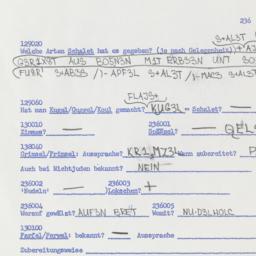 236
S+AL3T
129020
Welche Arten Schalet hat es gegeben? (je nach Gelegenheit)
Q3R1X3T AUS BO5N3N M1T ERB5EN UNT SO
FU8R' S+AB3S /)- APF3L S+AL3T /)-MAC3 S+AL3T
FLAJS+
129060
Hat man Kugel/Guggel/Koul gemacht? KUG3L — Schalet? —
130010 236001
Zimmes? — Soßßel? — QEL
138040
Grimsel/Frimsel: Aussprache? KR1,MZ3L Wann zubereitet? P
Auch bei Nichtjuden bekannt? NEIN
236002 236003
'Nudeln: — )Lokschen? +
236004 236005
Worauf gewälzt? AUF3N BRET Womit? NU·D3LHOLC
130100
Farfel/Ferwel: bekannt? — Aussprache
Zubereitungsweise